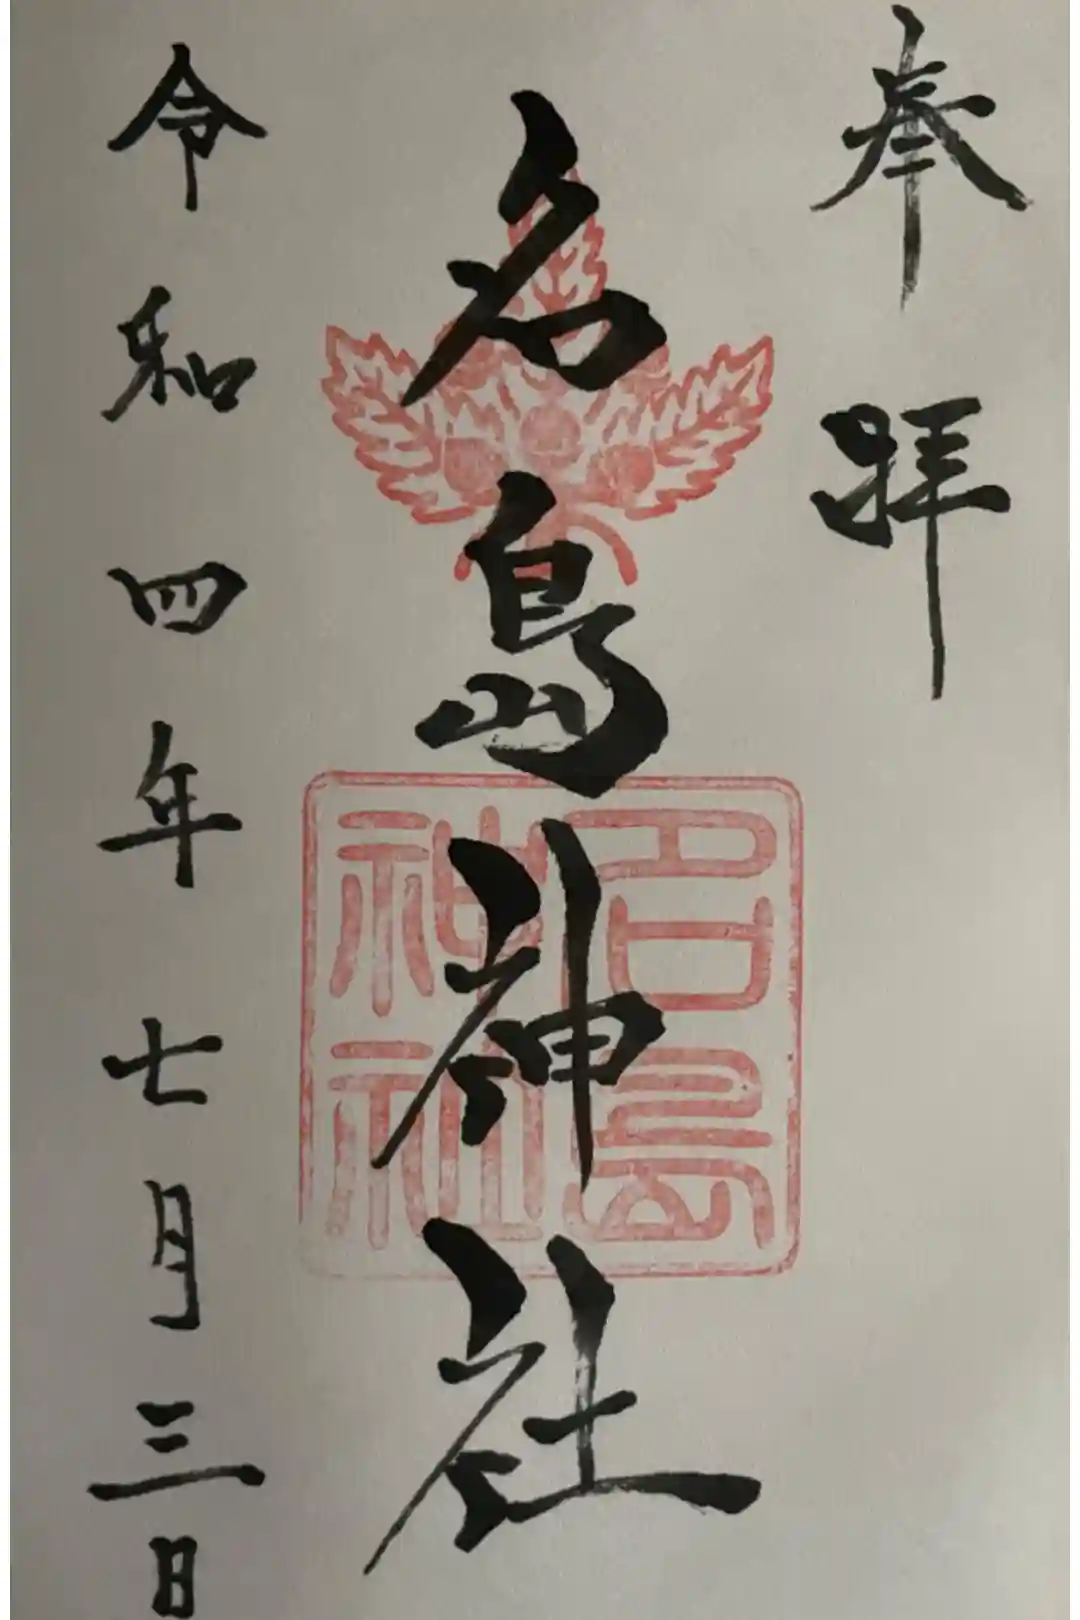 奉拝
名島神社
名島神社
令和四年七月三日